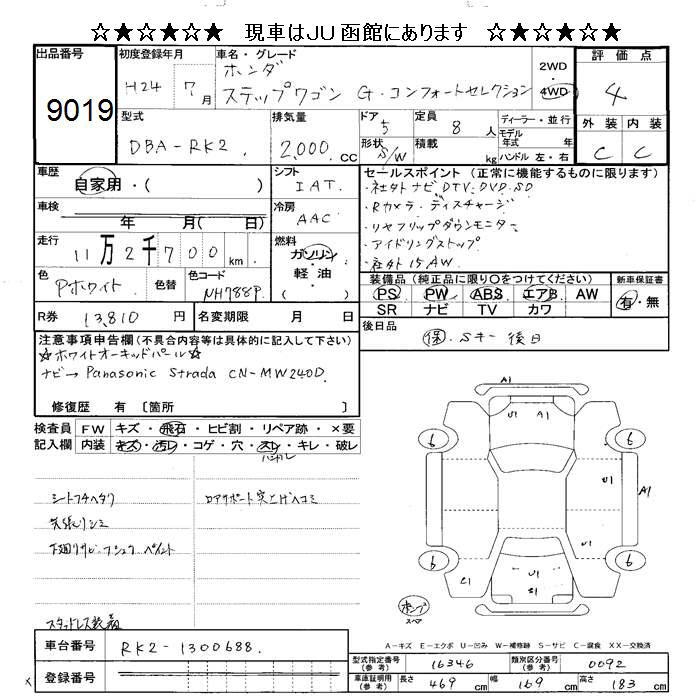 ☆★☆★☆★　現車はJU函館にあります　☆★☆★☆★
出品番号 初度登録年月 車名・グレード 評価点
9019 H24年 7月 ホンダ 2WD
ステップワゴン G・コンフォートセレクション 4WD 4
型式 排気量 ドア 5 定員 8人 ディーラー・並行 外装 内装
DBA-RK2. 2,000.cc 形状 S/W 積載 kg モデル年式 年 ハンドル 左・右 C C
車歴 シフト セールスポイント（正常に機能するものに限ります）
自家用・( ) IAT. ・社外ナビDTV.DVD.SD
車検 冷房 ・Rカメラ・ディスチャージ
年 月( 日) AAC ・リヤフリップダウンモニター
走行 燃料 ・アイドリングストップ
11万2千700km ガソリン 軽油 ( ) ・社外15.AW.
色 色替 色コード 装備品（純正品に限り〇をつけてください） 新車保証書
Pホワイト NH788P PS PW ABS エアB AW 有・無
R券 13,810円 名変期限 月 日 SR ナビ TV カワ
注意事項申告欄(不具合内容等は具体的に記入して下さい) 後日品
☆ホワイトオーキッドパール☆ 保. Sキー後日
ナビ→Panasonic Strada CN-MW240D.
修復歴 有〔箇所 〕
検査員 FW キズ・飛石・ヒビ割・リペア跡・×要
記入欄 内装 キズ・汚レ・コゲ・穴・スレ・キレ・破レ
A1
U1 A1
6 6
U1 A1
U1
6 6
C1 U1 C1
U1
シートフチヘタリ ロアサポート突上げヘコミ
天張りシミ
下廻りサビ・フシュク ペイント
スタッドレス装着
パンク スペア
車台番号 RK2-1300688.
登録番号
A-キズ E-エクボ U-凹み W-補修跡 S-サビ C-腐食 XX-交換済
型式指定番号(参考) 16346 類別区分番号(参考) 0092
車庫証明用(参考) 長さ 469cm 幅 169cm 高さ 183cm